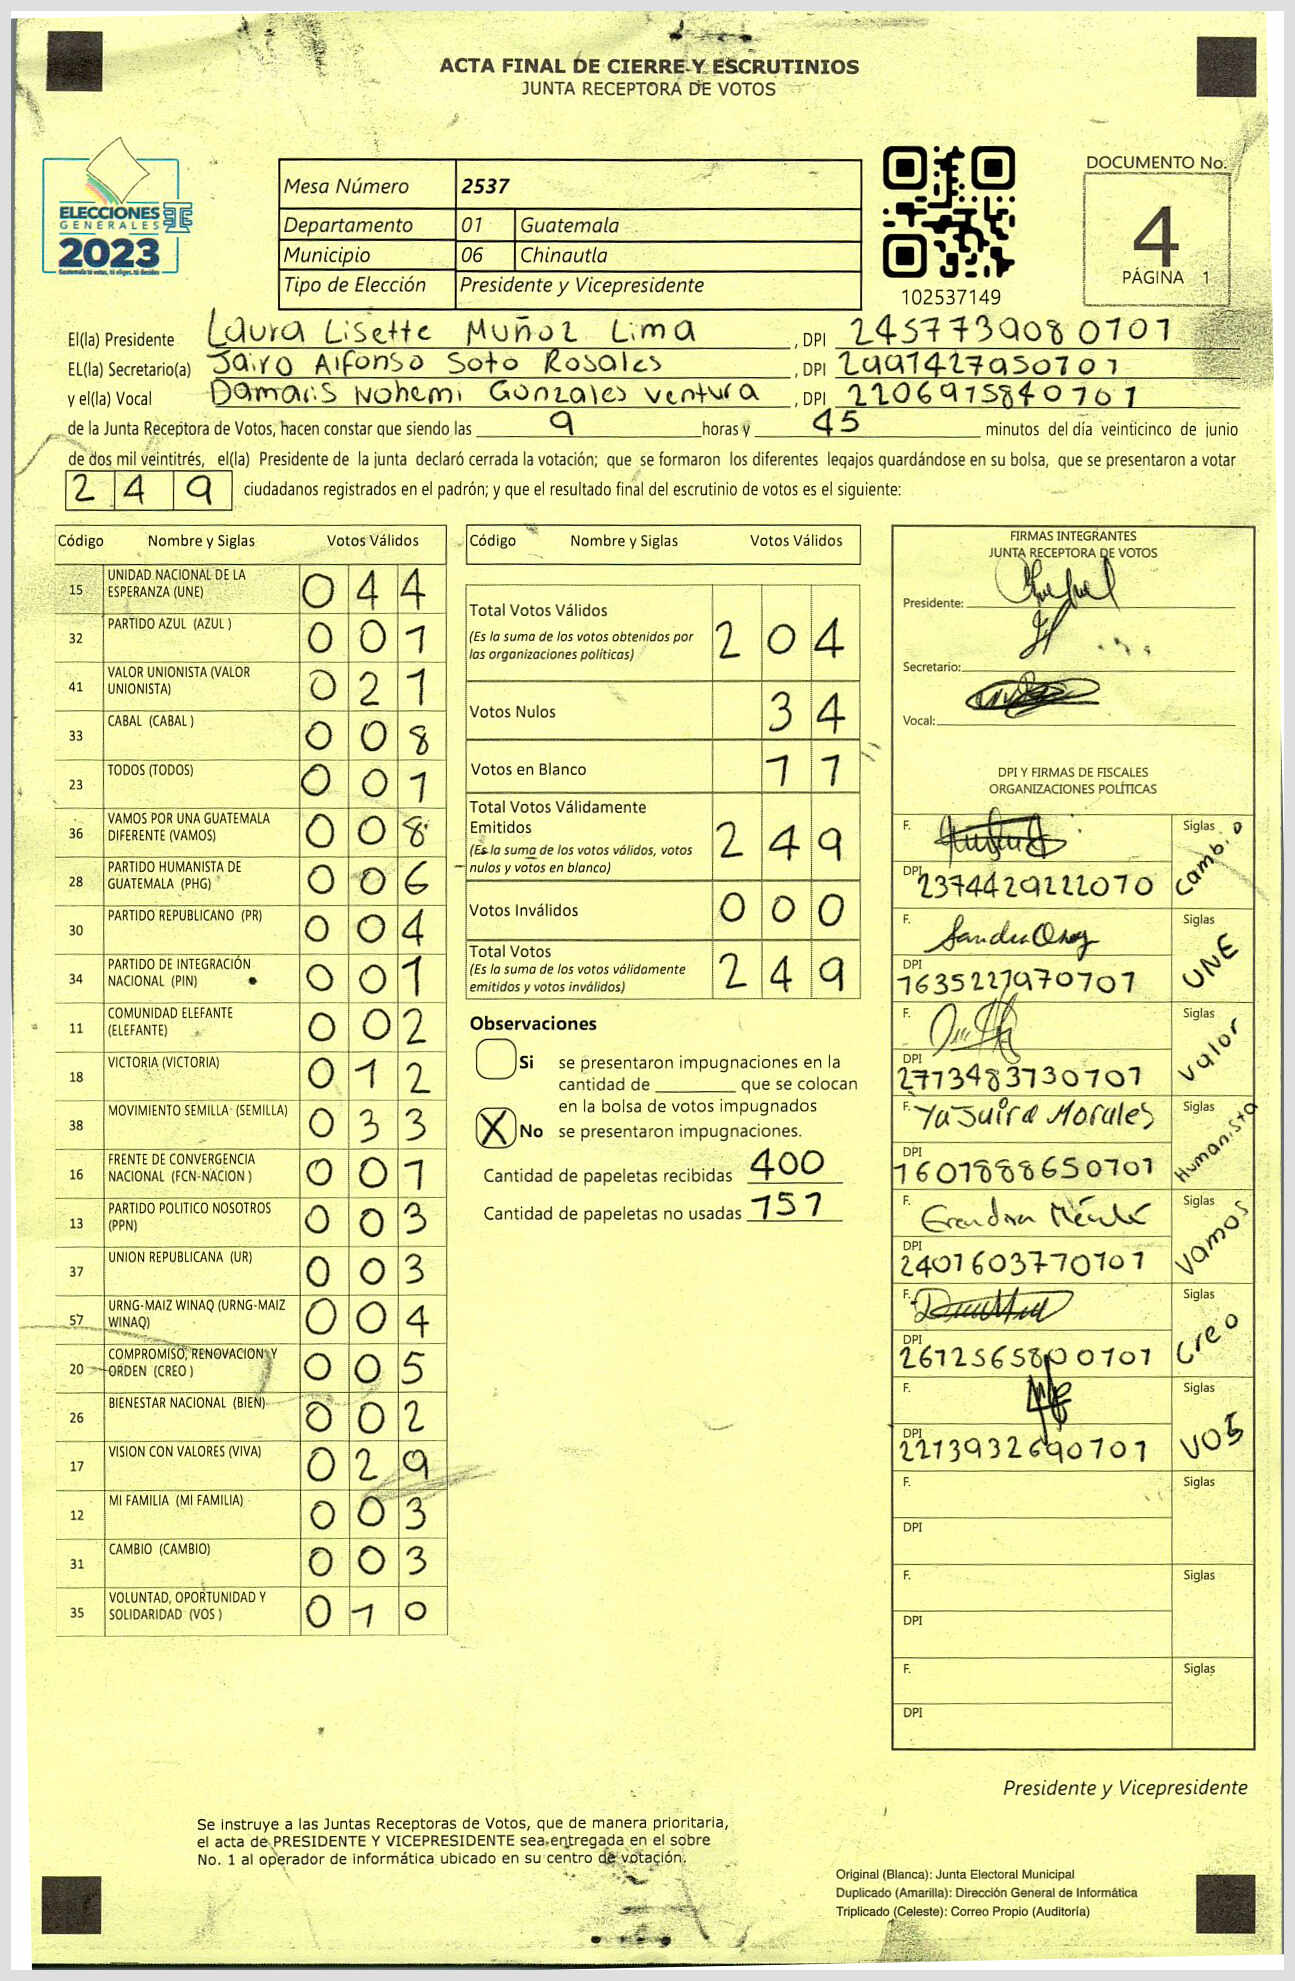 ACTA FINAL DE CIERRE Y ESCRUTINIOS
JUNTA RECEPTORA DE VOTOS
ELECCIONES
GENERALES
2023
Guatemala tú votas, tú eliges, tú decides
Mesa Número 2537
Departamento 01 Guatemala
Municipio 06 Chinautla
Tipo de Elección Presidente y Vicepresidente
102537149
DOCUMENTO No.
4
PÁGINA 1
El(la) Presidente Laura Lisette Muñoz Lima, DPI 2457739080101
EL(la) Secretario(a) Jairo Alfonso Soto Rosales, DPI 2991427950101
y el(la) Vocal Damaris Nohemi Gonzales Ventura, DPI 2206975840101
de la Junta Receptora de Votos, hacen constar que siendo las 9 horas y 45 minutos del día veinticinco de junio
de dos mil veintitrés, el(la) Presidente de la junta declaró cerrada la votación; que se formaron los diferentes legajos guardándose en su bolsa, que se presentaron a votar
249 ciudadanos registrados en el padrón; y que el resultado final del escrutinio de votos es el siguiente:
Código Nombre y Siglas Votos Válidos
15 UNIDAD NACIONAL DE LA ESPERANZA (UNE) 044
32 PARTIDO AZUL (AZUL ) 001
41 VALOR UNIONISTA (VALOR UNIONISTA) 021
33 CABAL (CABAL ) 008
23 TODOS (TODOS) 001
36 VAMOS POR UNA GUATEMALA DIFERENTE (VAMOS) 008
28 PARTIDO HUMANISTA DE GUATEMALA (PHG) 006
30 PARTIDO REPUBLICANO (PR) 004
34 PARTIDO DE INTEGRACIÓN NACIONAL (PIN) 001
11 COMUNIDAD ELEFANTE (ELEFANTE) 002
18 VICTORIA (VICTORIA) 012
38 MOVIMIENTO SEMILLA (SEMILLA) 033
16 FRENTE DE CONVERGENCIA NACIONAL (FCN-NACION ) 001
13 PARTIDO POLITICO NOSOTROS (PPN) 003
37 UNION REPUBLICANA (UR) 003
57 URNG-MAIZ WINAQ (URNG-MAIZ WINAQ) 004
20 COMPROMISO, RENOVACION Y ORDEN (CREO ) 005
26 BIENESTAR NACIONAL (BIEN) 002
17 VISION CON VALORES (VIVA) 029
12 MI FAMILIA (MI FAMILIA) 003
31 CAMBIO (CAMBIO) 003
35 VOLUNTAD, OPORTUNIDAD Y SOLIDARIDAD (VOS ) 010
Código Nombre y Siglas Votos Válidos
Total Votos Válidos 204
(Es la suma de los votos obtenidos por
las organizaciones políticas)
Votos Nulos 34
Votos en Blanco 11
Total Votos Válidamente
Emitidos 249
(Es la suma de los votos válidos, votos
nulos y votos en blanco)
Votos Inválidos 000
Total Votos 249
(Es la suma de los votos válidamente
emitidos y votos inválidos)
Observaciones
Si se presentaron impugnaciones en la
cantidad de ________ que se colocan
en la bolsa de votos impugnados
X No se presentaron impugnaciones.
Cantidad de papeletas recibidas 400
Cantidad de papeletas no usadas 151
FIRMAS INTEGRANTES
JUNTA RECEPTORA DE VOTOS
Presidente:
Secretario:
Vocal:
DPI Y FIRMAS DE FISCALES
ORGANIZACIONES POLÍTICAS
F. Siglas Cambio
DPI 2374429222070
F. Siglas UNE
DPI 1635227970101
F. Siglas Valor
DPI 2773483730101
F. Yajaira Morales Siglas Humanista
DPI 1601888650101
F. Siglas Vamos
DPI 2401603770101
F. Siglas Creo
DPI
F. Siglas VOS
DPI 2213932690101
F. Siglas
DPI
F. Siglas
DPI
F. Siglas
DPI
Presidente y Vicepresidente
Se instruye a las Juntas Receptoras de Votos, que de manera prioritaria,
el acta de PRESIDENTE Y VICEPRESIDENTE sea entregada en el sobre
No. 1 al operador de informática ubicado en su centro de votación.
Original (Blanca): Junta Electoral Municipal
Duplicado (Amarilla): Dirección General de Informática
Triplicado (Celeste): Correo Propio (Auditoría)